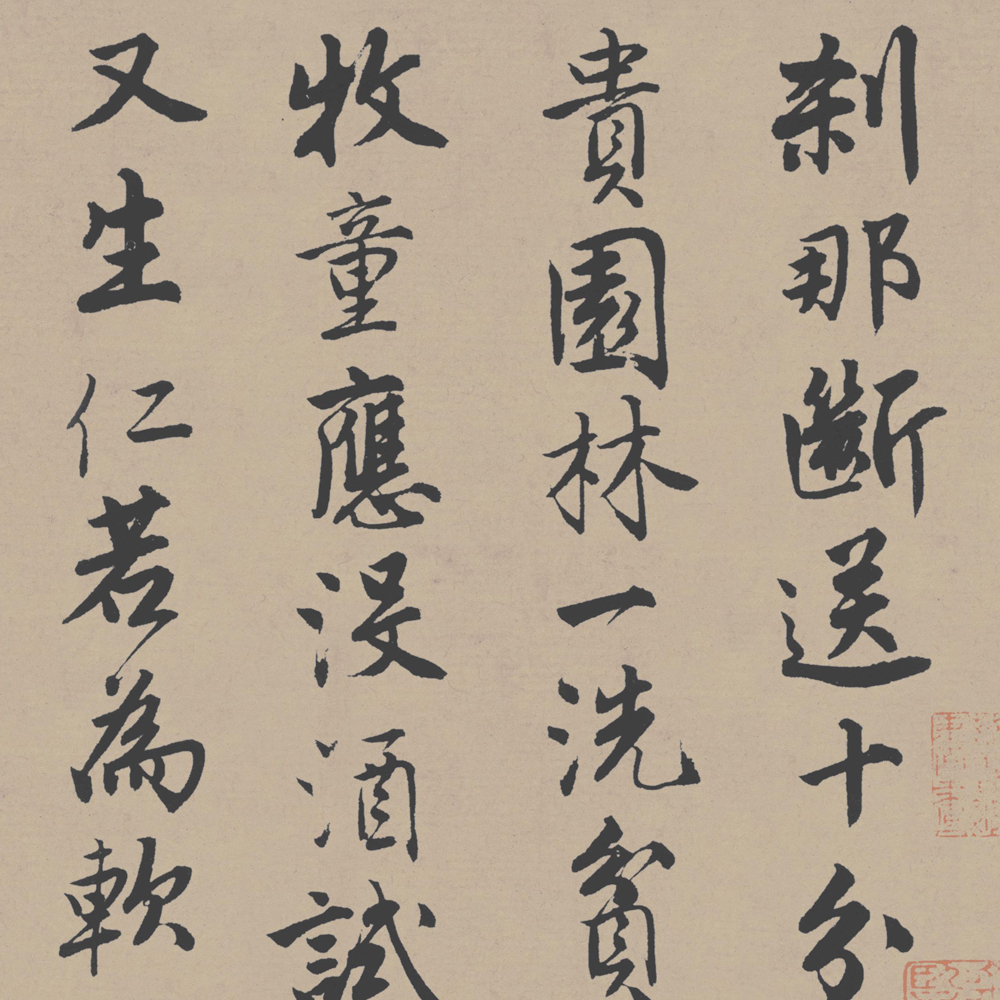 刹那断送十分
貴園林一洗貧
牧童應没酒試
又生仁若為軟